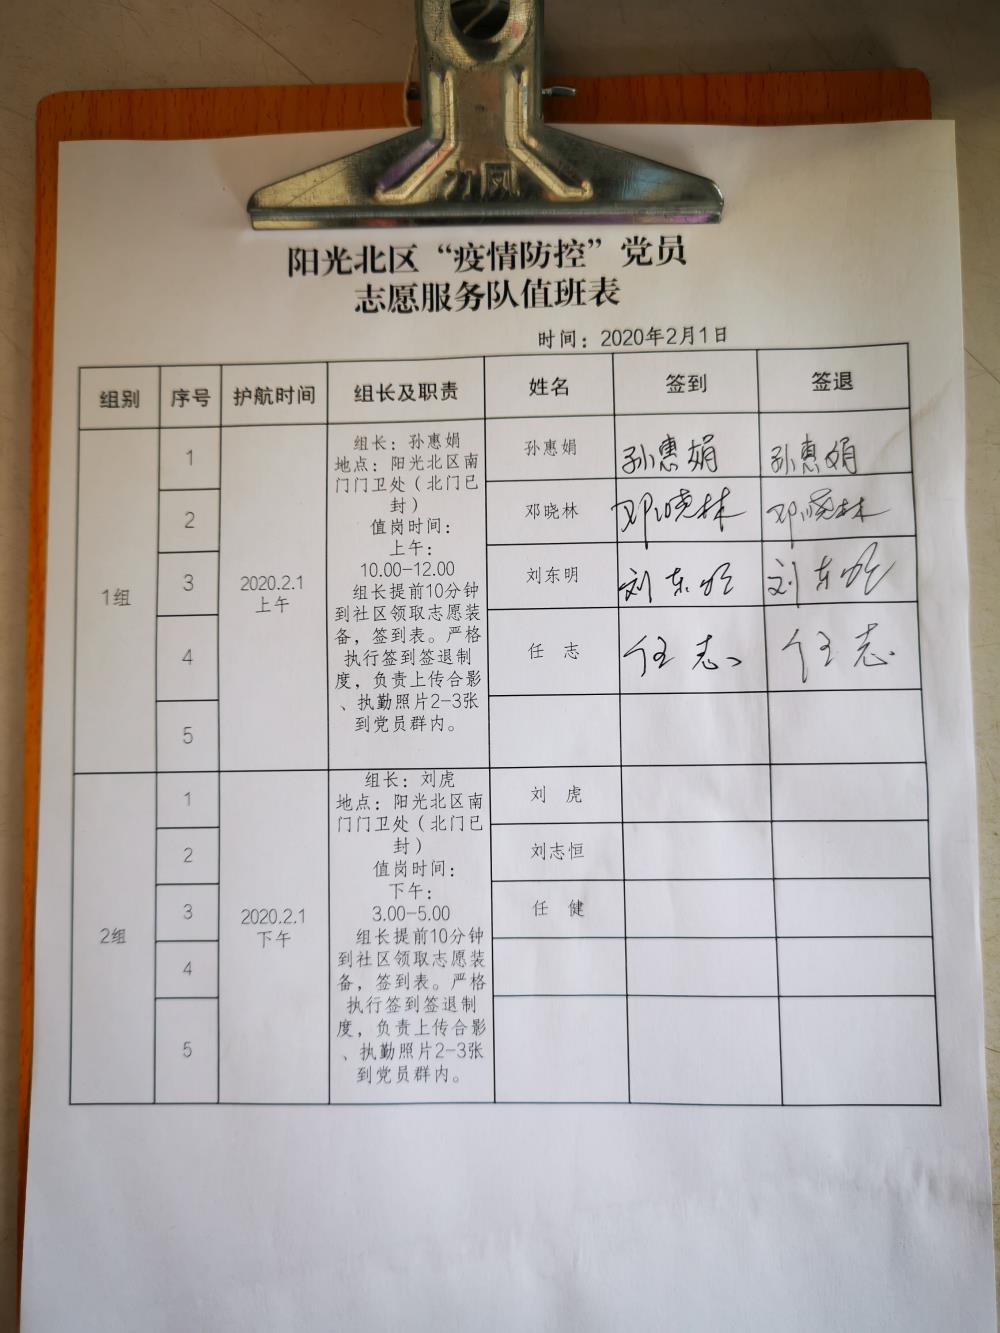 力凤
阳光北区“疫情防控”党员
志愿服务队值班表
时间：2020年2月1日
组别 序号 护航时间 组长及职责 姓名 签到 签退
1组
2020.2.1
上午
组长：孙惠娟
地点：阳光北区南
门门卫处（北门已
封）
值岗时间：
上午：
10.00-12.00
组长提前10分钟
到社区领取志愿装
备，签到表。严格
执行签到签退制
度，负责上传合影
、执勤照片2-3张
到党员群内。
1 孙惠娟 孙惠娟 孙惠娟
2 邓晓林 邓晓林 邓晓林
3 刘东明 刘东明 刘东明
4 任 志 任志 任志
5
2组
2020.2.1
下午
组长：刘虎
地点：阳光北区南
门门卫处（北门已
封）
值岗时间：
下午：
3.00-5.00
组长提前10分钟
到社区领取志愿装
备，签到表。严格
执行签到签退制
度，负责上传合影
、执勤照片2-3张
到党员群内。
1 刘 虎
2 刘志恒
3 任 健
4
5